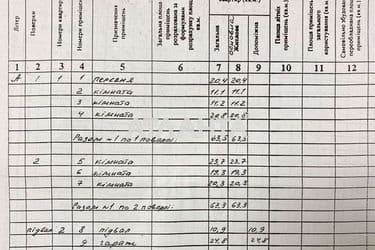 Літер
Поверхи
Номери квартир
Номери приміщень
Призначення приміщень
Загальна площа приміщень розрахована за формулами розрахунку площ кв.м.
Загальна
Житлова
Допоміжна
Площа літніх приміщень (кв.м.)
Площа приміщень загального користування (кв.м.)
1 2 3 4 5 6 7 8 9 10 11 12
А 1 1 1 20,4 20,4
2 кімната 11,1 11,1
3 кімната 11,2 11,2
4 кімната 20,8 20,8
Разом №1 по 1 поверсі: 63,5 63,5
2 5 кімната 23,7 23,7
6 кімната 19,3 19,3
7 кімната 20,3 20,3
Разом №1 по 2 поверсі: 63,3 63,3
підвал 2 8 підвал 10,9 10,9
9 гараж 24,8 24,8